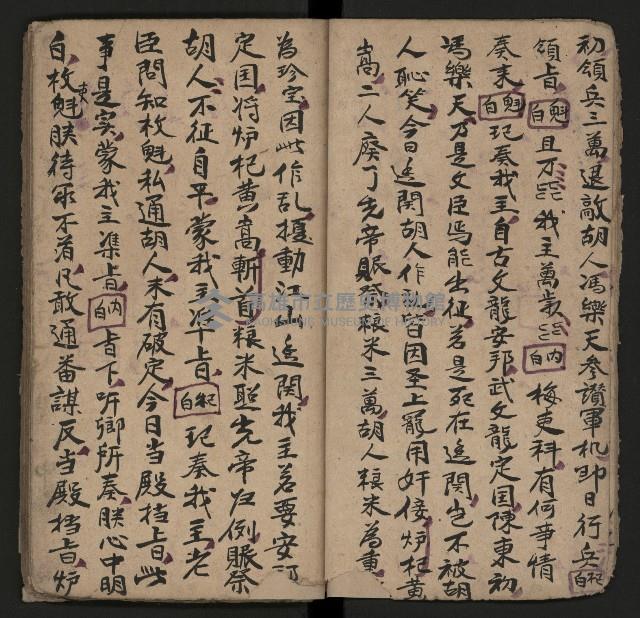 初領兵三萬退敵胡人馮樂天參讚軍机即日行兵 杞白
領旨 魁白 且万〻 我主萬歲〻 内白 梅吏科有何事情
奏來 魁白 玘奏我主自古文龍安邦武文龍定国陳東初
馮樂天乃是文臣焉能出征若是死在邊関豈不被胡
人恥笑今日邊関胡人作乱皆因圣上寵用奸佞炉杞黄
嵩二人廢了先帝賬祭粮米三萬胡人粮米為重
為珍宝因此作乱擾動江山邊関我主若要安
定国将炉杞黄嵩斬首粮米照先帝归例賬祭
胡人不征自平蒙我主准旨 杞白 玘奏我主老
臣問知枚魁私通胡人未有破定今日当殿挡旨此
事是实蒙我主準旨 内白 旨下听卿所奏朕心中明
白枚魁朕待你不薄凡敢通番謀反当殿挡旨炉
東
高雄市立歷史博物館
KAOHSIUNG MUSEUM OF HISTORY